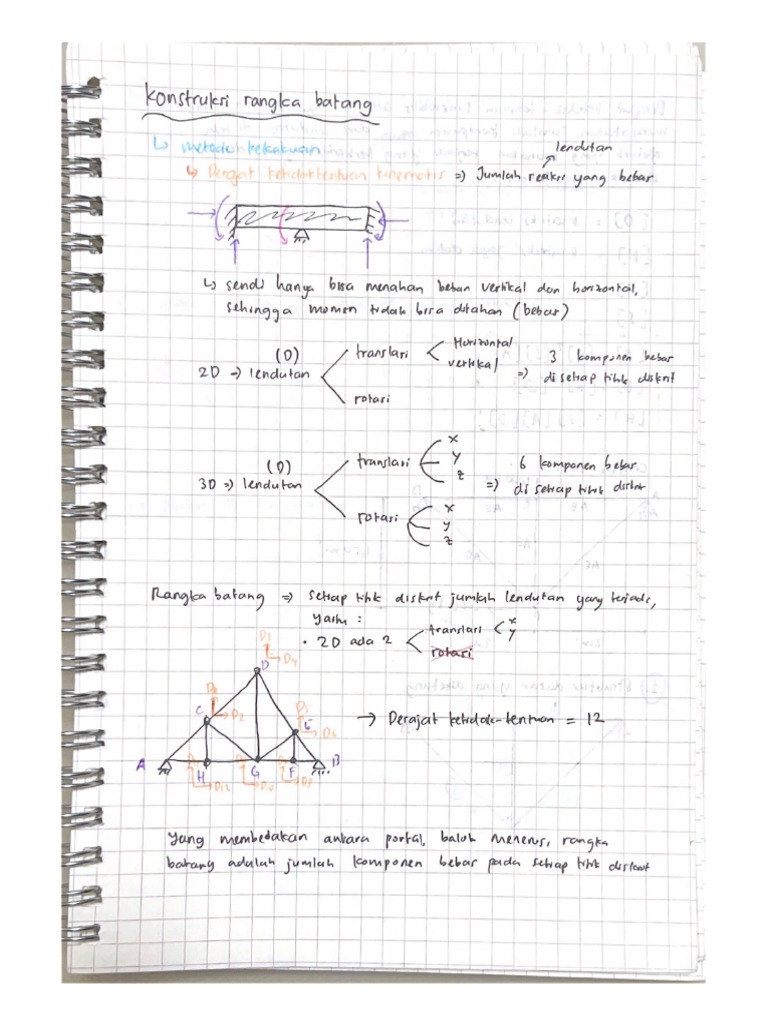 Konstruksi rangka batang
↳ metode kekakuan
lendutan
↳ Derajat ketidaktentuan kinematis => Jumlah reaksi yang bebas
↳ sendi hanya bisa menahan beban vertikal dan horizontal,
sehingga momen tidak bisa ditahan (bebas)
(D)
2D => lendutan
translasi
Horizontal
vertikal
rotasi
=> 3 komponen bebas
di setiap titik diskrit
(D)
3D => lendutan
translasi
x
y
z
rotasi
x
y
z
=> 6 komponen bebas
di setiap titik diskrit
Rangka batang => setiap titik diskrit jumlah lendutan yang terjadi,
yaitu :
• 2D ada 2
translasi
x
y
rotasi
D3
D4
D
D1
D2
C
D5
D6
E
A
H
G
F
B
D12
D10
D8
→ Derajat ketidak-tentuan = 12
Yang membedakan antara portal, balok menerus, rangka
batang adalah jumlah komponen bebas pada setiap titik diskrit